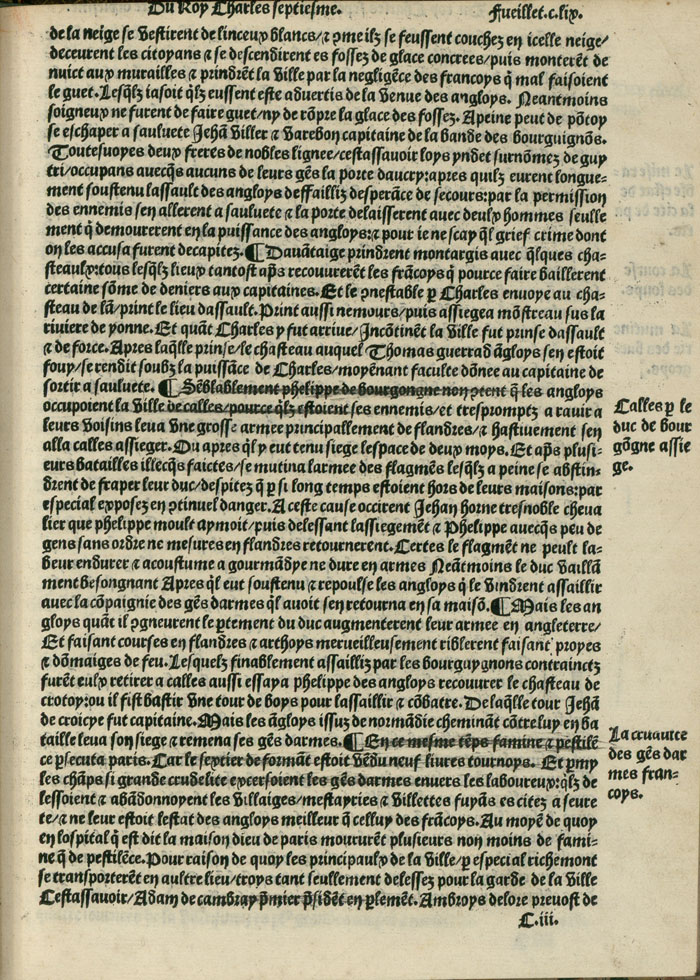 Du Roy Charles septiesme.
Fueillet.c.lix.
de la neige se vestirent de linceux blancs/⁊ ꝯme ilz se feussent couchez en icelle neige/
deceurent les citoyans ⁊ se descendirent es fossez de glace concrees/puis monterēt de
nuict aux murailles ⁊ prindrēt la ville par la negligēce des francoys q̄ mal faisoient
le guet. Lesq̄lz iasoit q̄lz eussent este advertis de la venue des angloys. Neantmoins
soigneux ne furent de faire guet/ny de rōpre la glace des fossez. A peine peut de pōtoy
se eschaper a sauluete Jehā viller ⁊ Varebon capitaine de la bande des bourguignōs.
Toutesuoyes deux freres de nobles lignee/cestassavoir loys yndet surnōmez de guy
tri/occupans avecq̄s aucuns de leurs gēs la porte daucry:apres quilz eurent longue⸗
ment soustenu lassault des angloys deffailliz desperāce de secours:par la permission
des ennemis sen allerent a sauluete ⁊ la porte delaisserent avec deulx hommes seulle
ment q̄ demourerent en la puissance des angloys:⁊ pour ie ne scay q̄l grief crime dont
on les accusa furent decapitez. ¶ Davātaige prindrent montargis avec q̄lques cha⸗
steaulx:tous lesq̄lz lieux tantost ap̄s recouurerēt les frācoys q̄ pource faire baillerent
certaine sōme de deniers aux capitaines. Et le ꝯnestable ꝑ Charles envoye au cha⸗
steau de lā/print le lieu dassault. Print aussi nemours/puis assiegea mōstreau sus la
riviere de yonne. Et quāt Charles y fut arrive/Incōtinēt la ville fut prinse dassault
⁊ de force. Apres laq̄lle prinse/le chasteau auquel Thomas guerrad āgloys sen estoit
fouy/se rendit soubz la puissāce de Charles/moyēnant faculte dōnee au capitaine de
sortir a sauluete. ¶ Sēblablement phelippe de bourgongne non ꝯtent q̄ les angloys
occupoient la ville de calles/pource q̄lz estoient ses ennemis/et trespromptz a ravir a
leurs voisins leva vne grosse armee principallement de flandres/⁊ hastivement sen
alla calles assieger. Ou apres q̄l y eut tenu siege lespace de deux moys. Et ap̄s plusi⸗
eurs batailles illecq̄s faictes/se mutina larmee des flagmēs lesq̄lz a peine se abstin⸗
drent de fraper leur duc/despitez q̄ ꝑ si long temps estoient hors de leurs maisons:par
especial exposez en ꝯtinuel danger. A ceste cause occirent Jehan horne tresnoble cheva
lier que phelippe moult aymoit/puis delessant lassiegemēt ⁊ Phelippe avecq̄s peu de
gens sans ordre ne mesures en flandres retournerent. Certes le flagmēt ne peult la⸗
beur endurer ⁊ acoustume a gourmādye ne dure en armes Neātmoins le duc vaillā
ment besongnant Apres q̄l eut soustenu ⁊ repoulse les angloys q̄ le vindrent assaillir
avec la cōpaignie des gēs darmes q̄l avoit sen retourna en sa maisō. ¶ Mais les an
gloys quāt il ꝯgneurent le ꝑtement du duc augmenterent leur armee en angleterre/
Et faisant courses en flandres ⁊ arthoys merveilleusement riblerent faisant proyes
⁊ dōmaiges de feu. Lesquelz finablement assailliz par les bourguygnons contrainctz
furēt eulx retirer a calles aussi essaya phelippe des angloys recouvrer le chasteau de
crotoy:ou il fist bastir vne tour de boys pour lassaillir ⁊ cōbatre. De laq̄lle tour Jehā
de croicye fut capitaine. Mais les āgloys issuz de normādie chemināt cōtre luy en ba
taille leva son siege ⁊ remena ses gēs darmes. ¶ En ce mesme tēps famine ⁊ pestilē
ce ꝑsecuta paris. Car le sextier de formāt estoit vēdu neuf livres tournoys. Et ꝑmy
les chāps si grande crudelite excersoient les gēs darmes envers les laboureux:q̄lz de
lessoient ⁊ abādonnoyent les villaiges/mestayries ⁊ villettes fuyās es citez a seure
te/⁊ ne leur estoit lestat des angloys meilleur q̄ celluy des frācoys. Au moyē de quoy
en lospital q̄ est dit la maison dieu de paris moururēt plusieurs non moins de fami⸗
ne q̄ de pestilēce. Pour raison de quoy les principaulx de la ville/ꝑ especial richemont
se transporterēt en aultre lieu/troys tant seullement delessez pour la garde de la ville
Cestassavoir/Adam de cambray p̄mier p̄sidēt en ꝑlemēt. Ambroys delore prevost de
C.iii.
Calles ꝑ le
duc de bour
gōgne assie
ge.
La cruaulte
des gēs dar
mes fran⸗
coys.